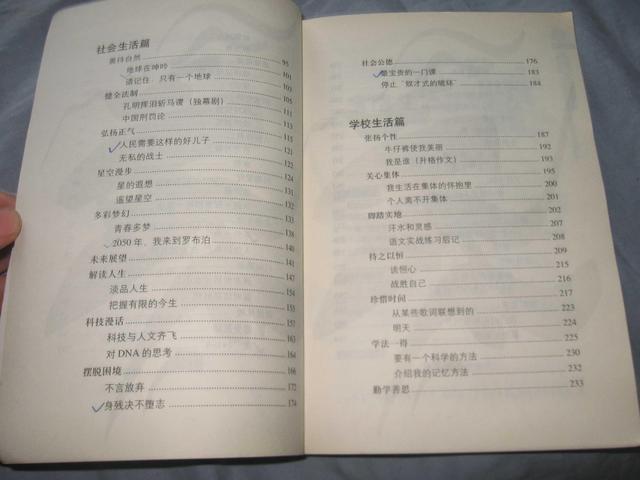 社会生活篇
善待自然 95
地球在呻吟 101
请记住，只有一个地球 103
健全法制 105
孔明挥泪斩马谡（独幕剧） 111
中国刑罚论 113
弘扬正气 115
人民需要这样的好儿子 121
无私的战士 122
星空漫步 124
星的遐想 131
遥望星空 132
多彩梦幻 133
青春多梦 138
2050年，我来到罗布泊 140
未来展望 141
解读人生 147
谈品人生 154
把握有限的今生
科技漫话 157
科技与人文齐飞 163
对DNA的思考 164
摆脱困境 166
不言放弃 172
身残决不堕志 174
社会公德 176
最宝贵的一门课 183
停止“奴才式的破坏” 184
学校生活篇
张扬个性 187
牛仔裤使我美丽 192
我是谁（升格作文） 193
关心集体 195
我生活在集体的怀抱里 200
个人离不开集体 201
脚踏实地 202
汗水和灵感 207
语文实战练习后记 208
持之以恒 209
谈恒心 215
战胜自己 216
珍惜时间 217
从某些歌词联想到的 223
明天 224
学法一得 225
要有一个科学的方法 230
介绍我的记忆方法 232
勤学善思 233